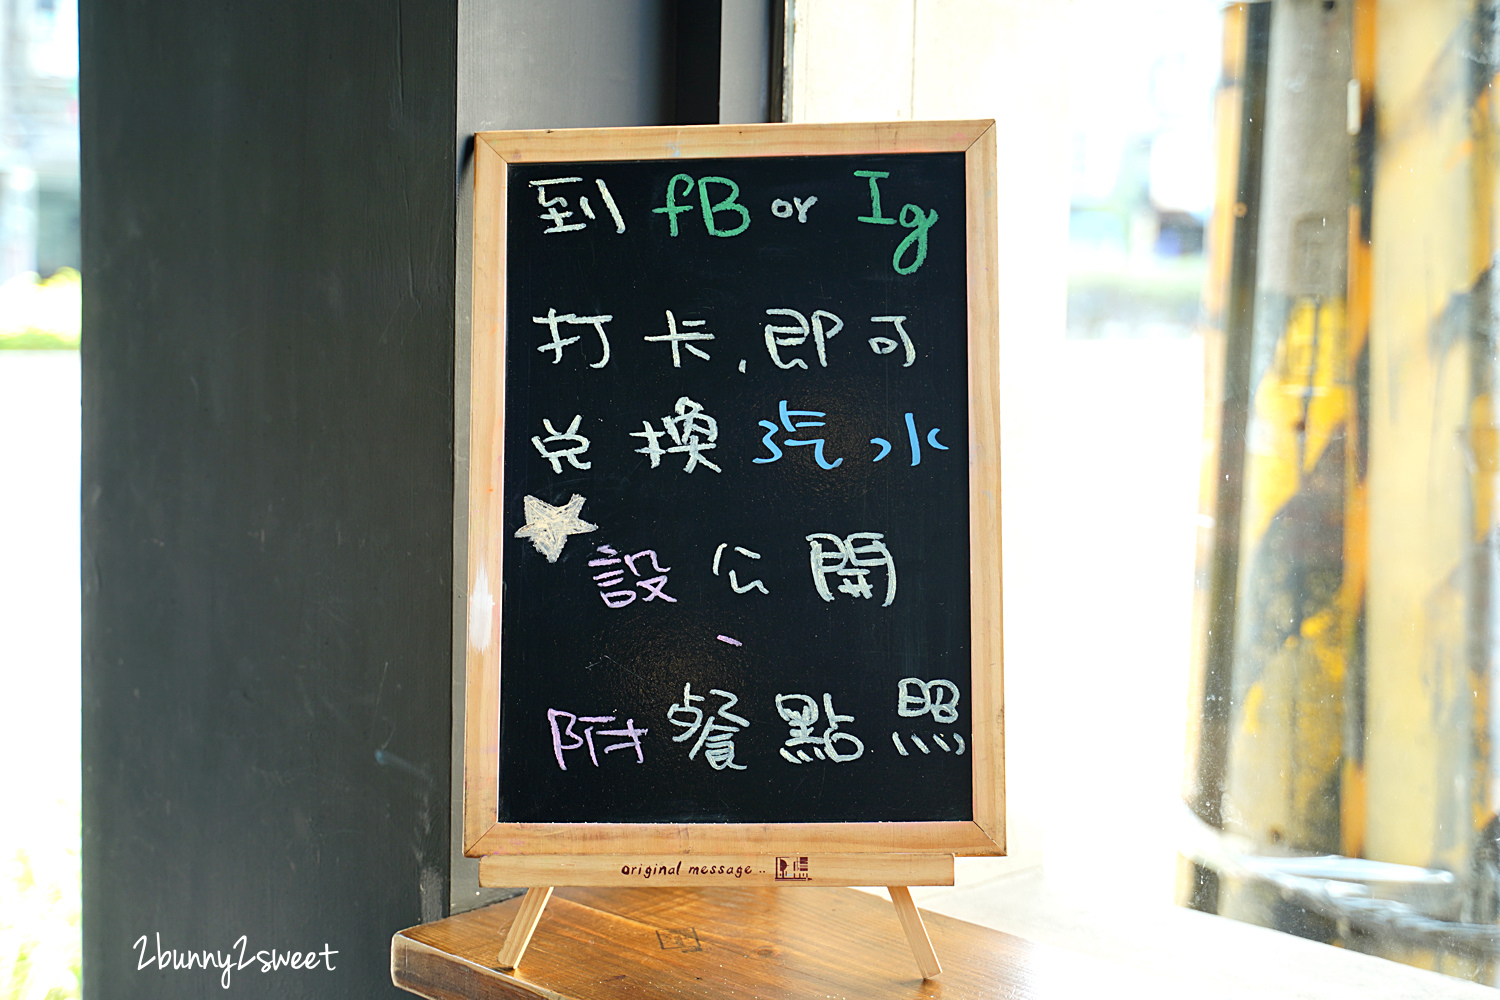 到 fB or Ig
打卡,即可
兑換汽水
設公開
、
附餐點照
original message..
2bunny2sweet